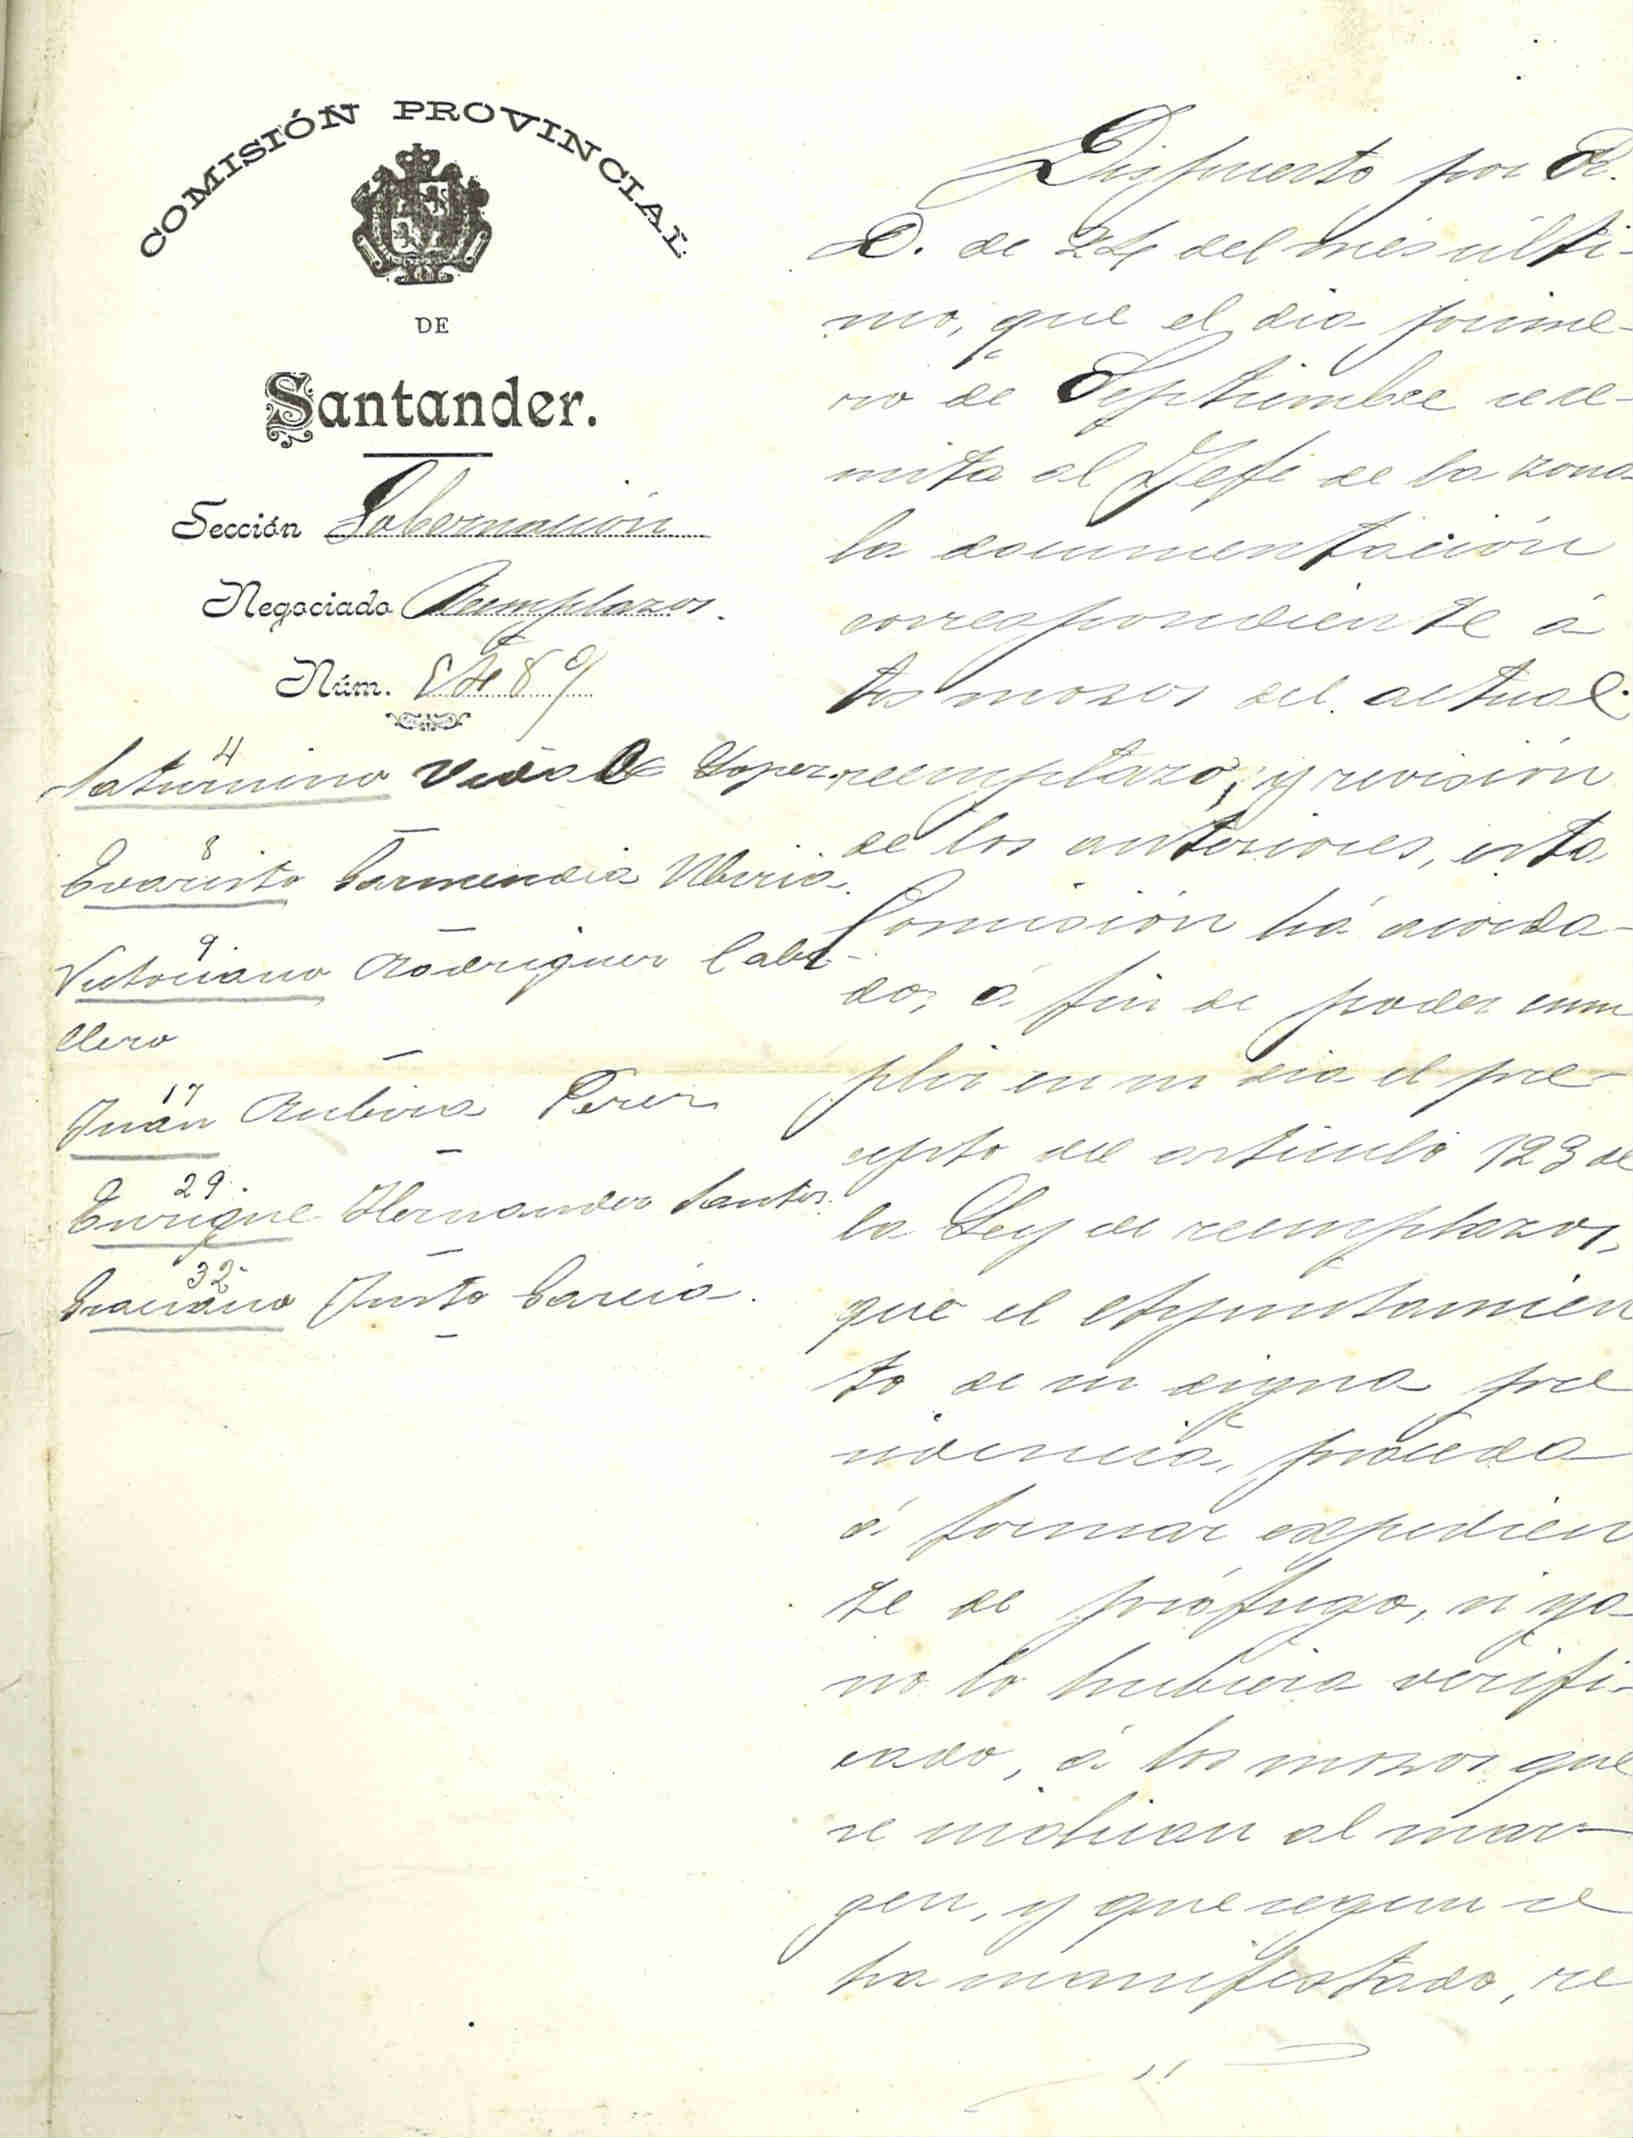 COMISIÓN PROVINCIAL
DE
Santander.
Sección Gobernación
Negociado Reemplazos.
Núm.
4
Saturnino Vidal Lopez.
8
Evaristo Garmendia Uberia.
9.
Victoriano Rodriguez Caba-
llero
17
Juan Rubira Perez
29.
Enrique Hernandez Santos.
32.
Graciano Justo Garcia.
Dispuesto por R.
D. de 24 del mes últi-
mo, que el dia prime-
ro de Septiembre se re-
mita al Jefe de la zona
la documentación
correspondiente á
los mozos del actual
reemplazo, y revisión
de los anteriores, esta
Comisión há acorda-
do, á fin de poder cum
plir en su dia el pre-
cepto del articulo 123 de
la Ley de reemplazos,
que el Ayuntamien
to de su digna pre
sidencia, proceda
á formar expedien
te de prófugo, si ya
no lo hubiera verifi-
cado, á los mozos que
se indican al mar-
gen, y que segun se
ha manifestado, re